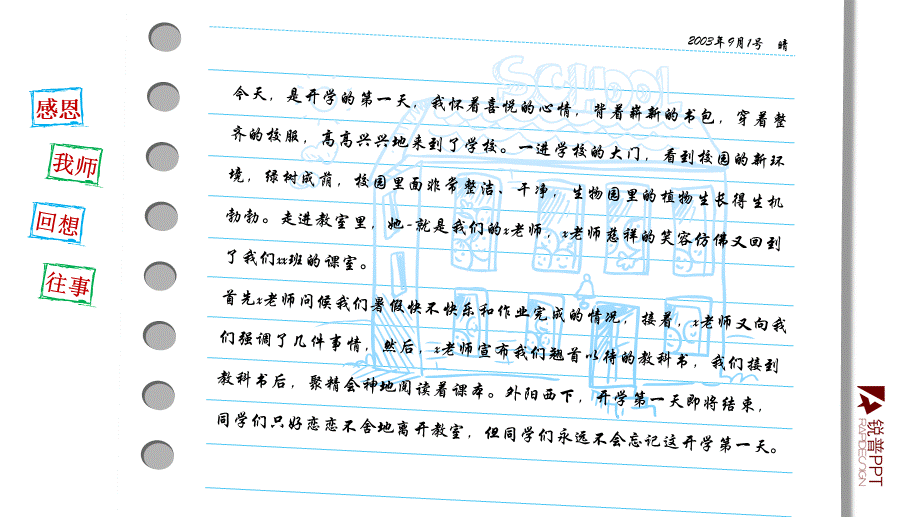 2003年9月1号 晴
感恩
我师
回想
往事
今天，是开学的第一天，我怀着喜悦的心情，背着崭新的书包，穿着整
齐的校服，高高兴兴地来到了学校。一进学校的大门，看到校园的新环
境，绿树成荫，校园里面非常整洁、干净，生物园里的植物生长得生机
勃勃。走进教室里，她-就是我们的x老师，x老师慈祥的笑容仿佛又回到
了我们xx班的课室。
首先x老师问候我们暑假快不快乐和作业完成的情况，接着，x老师又向我
们强调了几件事情，然后，x老师宣布我们翘首以待的教科书，我们接到
教科书后，聚精会神地阅读着课本。外阳西下，开学第一天即将结束，
同学们只好恋恋不舍地离开教室，但同学们永远不会忘记这开学第一天。
SCHOOL
锐普PPT
RAPIDESIGN